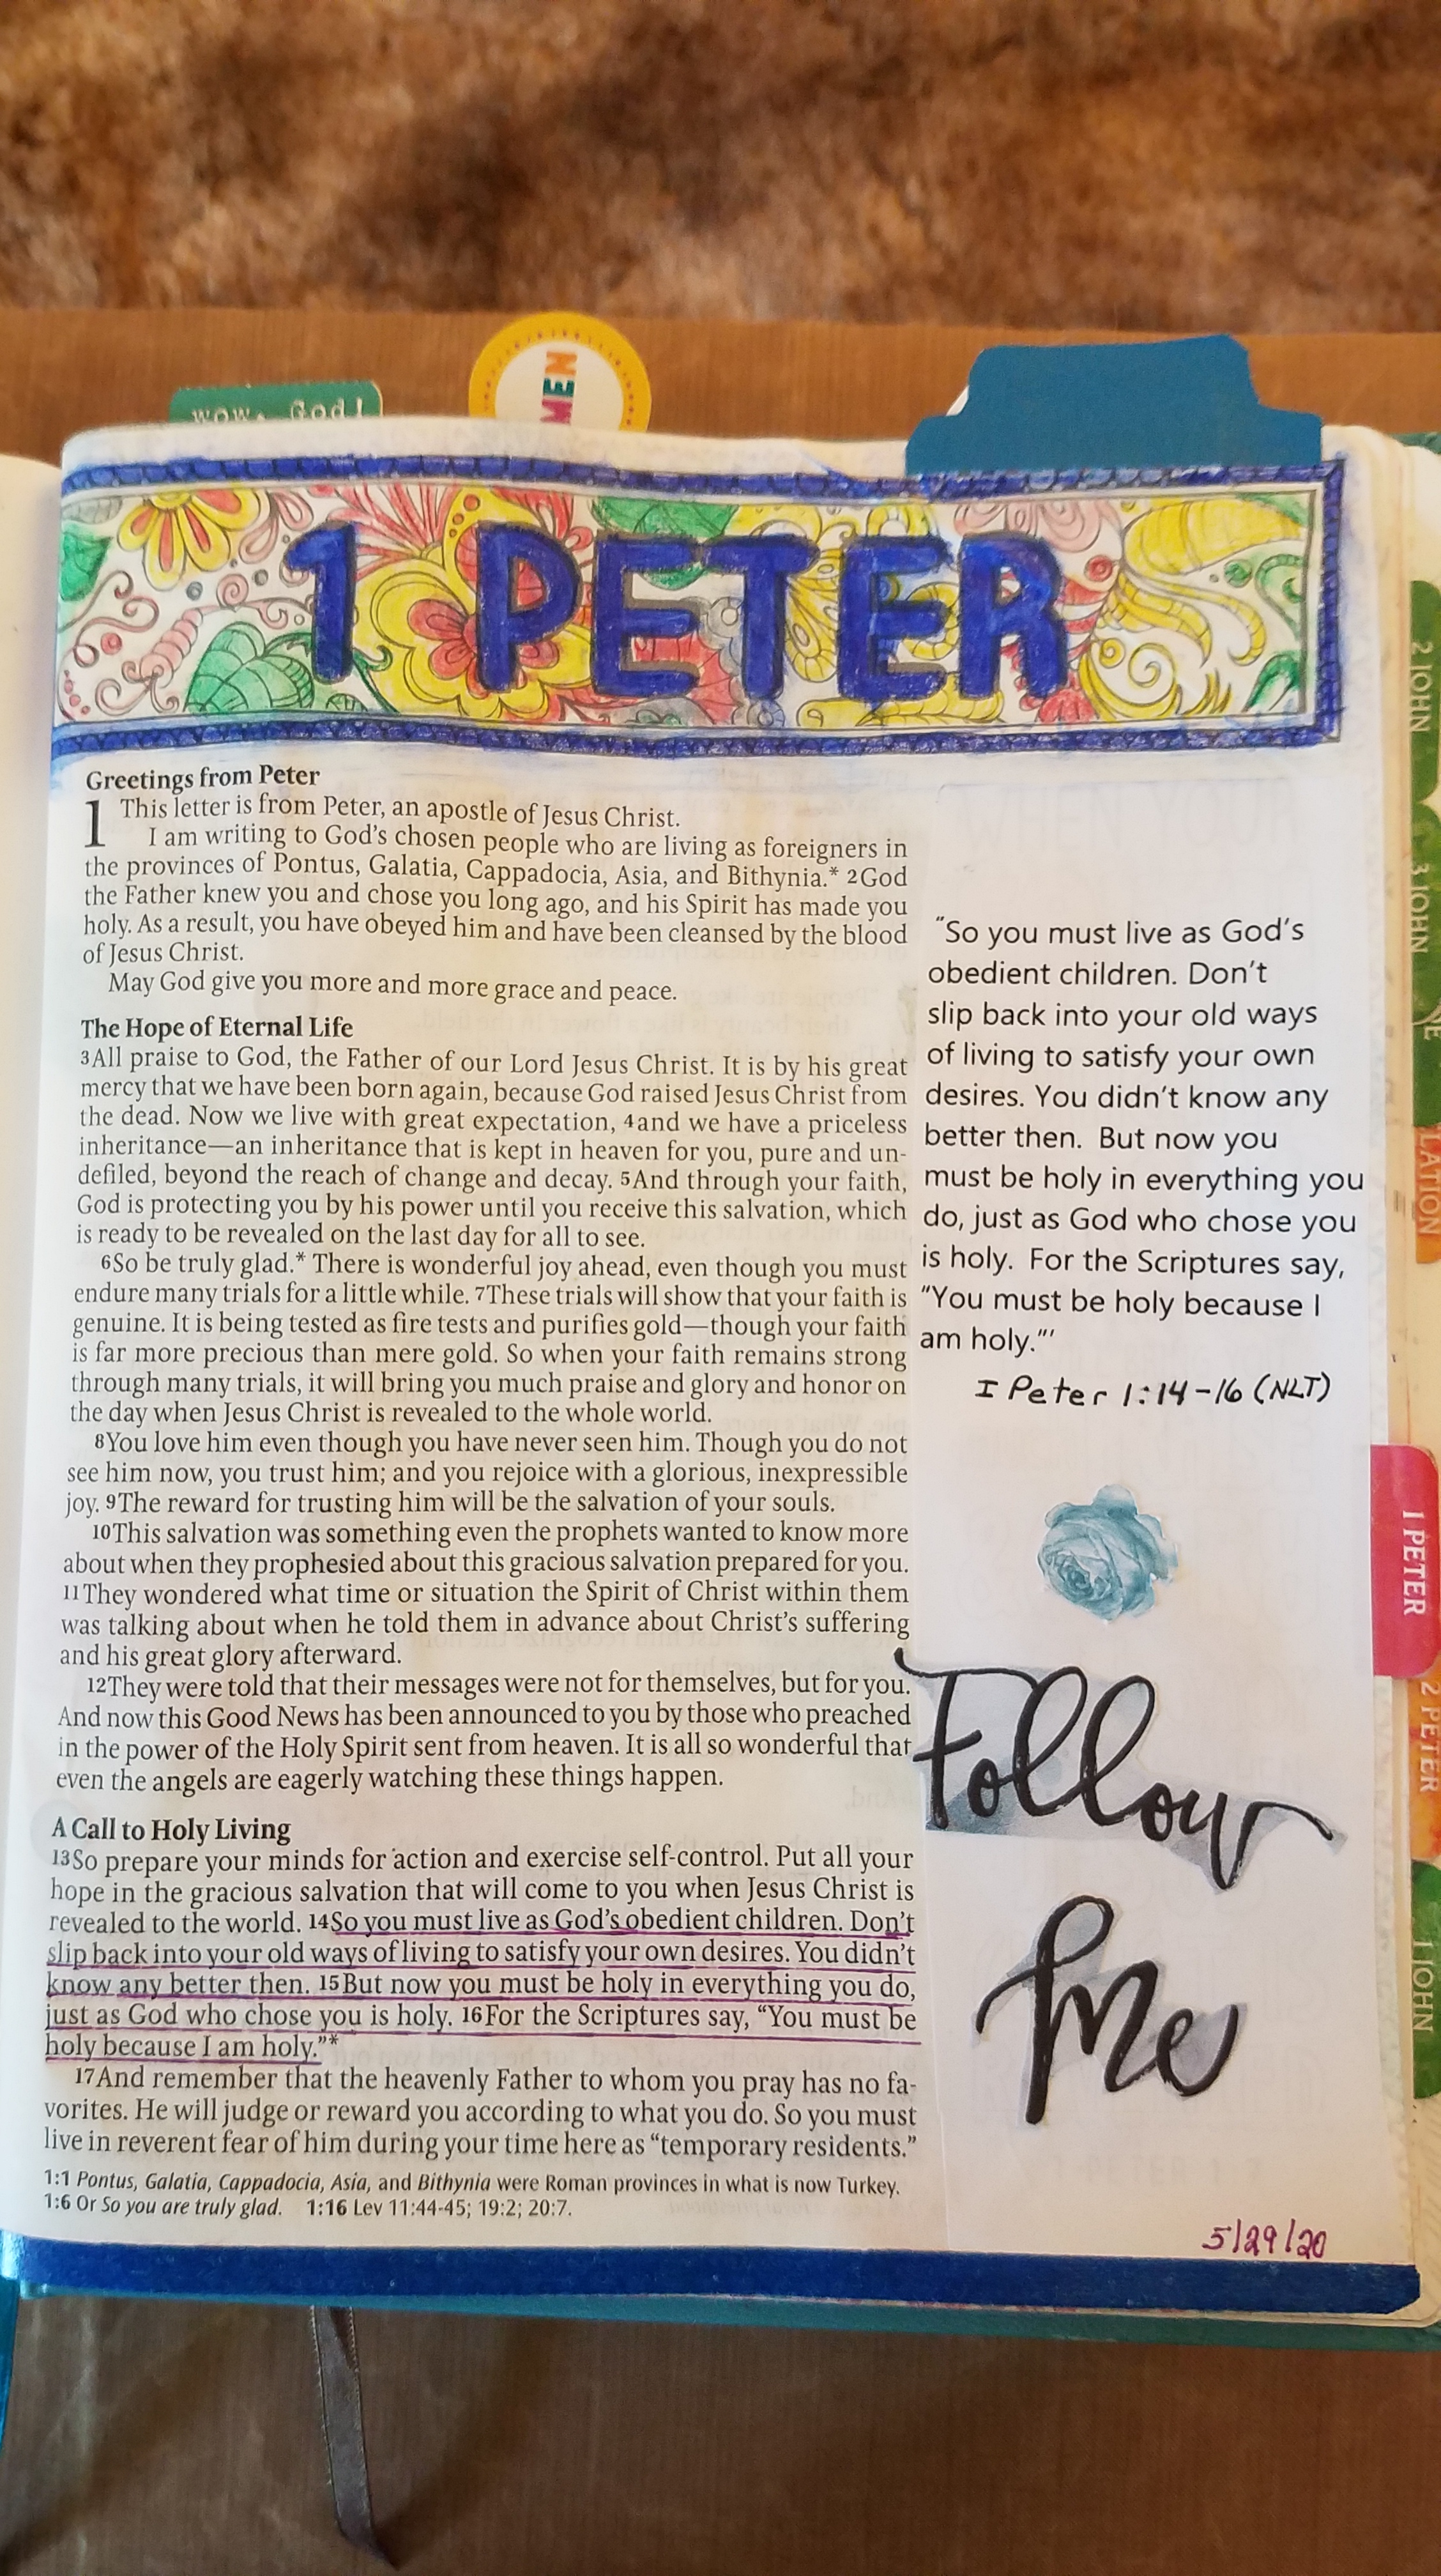 wow, God!
MEN
1 PETER
Greetings from Peter
1 This letter is from Peter, an apostle of Jesus Christ.
I am writing to God's chosen people who are living as foreigners in
the provinces of Pontus, Galatia, Cappadocia, Asia, and Bithynia.* 2God
the Father knew you and chose you long ago, and his Spirit has made you
holy. As a result, you have obeyed him and have been cleansed by the blood
of Jesus Christ.
May God give you more and more grace and peace.
The Hope of Eternal Life
3All praise to God, the Father of our Lord Jesus Christ. It is by his great
mercy that we have been born again, because God raised Jesus Christ from
the dead. Now we live with great expectation, 4and we have a priceless
inheritance—an inheritance that is kept in heaven for you, pure and un-
defiled, beyond the reach of change and decay. 5And through your faith,
God is protecting you by his power until you receive this salvation, which
is ready to be revealed on the last day for all to see.
6So be truly glad.* There is wonderful joy ahead, even though you must
endure many trials for a little while. 7These trials will show that your faith is
genuine. It is being tested as fire tests and purifies gold—though your faith
is far more precious than mere gold. So when your faith remains strong
through many trials, it will bring you much praise and glory and honor on
the day when Jesus Christ is revealed to the whole world.
8You love him even though you have never seen him. Though you do not
see him now, you trust him; and you rejoice with a glorious, inexpressible
joy. 9The reward for trusting him will be the salvation of your souls.
10This salvation was something even the prophets wanted to know more
about when they prophesied about this gracious salvation prepared for you.
11They wondered what time or situation the Spirit of Christ within them
was talking about when he told them in advance about Christ's suffering
and his great glory afterward.
12They were told that their messages were not for themselves, but for you.
And now this Good News has been announced to you by those who preached
in the power of the Holy Spirit sent from heaven. It is all so wonderful that
even the angels are eagerly watching these things happen.
A Call to Holy Living
13So prepare your minds for action and exercise self-control. Put all your
hope in the gracious salvation that will come to you when Jesus Christ is
revealed to the world. 14So you must live as God's obedient children. Don't
slip back into your old ways of living to satisfy your own desires. You didn't
know any better then. 15But now you must be holy in everything you do,
just as God who chose you is holy. 16For the Scriptures say, “You must be
holy because I am holy.”*
17And remember that the heavenly Father to whom you pray has no fa-
vorites. He will judge or reward you according to what you do. So you must
live in reverent fear of him during your time here as “temporary residents.”
1:1 Pontus, Galatia, Cappadocia, Asia, and Bithynia were Roman provinces in what is now Turkey.
1:6 Or So you are truly glad. 1:16 Lev 11:44-45; 19:2; 20:7.
"So you must live as God's
obedient children. Don't
slip back into your old ways
of living to satisfy your own
desires. You didn't know any
better then. But now you
must be holy in everything you
do, just as God who chose you
is holy. For the Scriptures say,
"You must be holy because I
am holy."'
I Peter 1:14-16 (NLT)
Follow
Me
5/29/20
2 JOHN
3 JOHN
LATION
1 PETER
2 PETER
1 JOHN